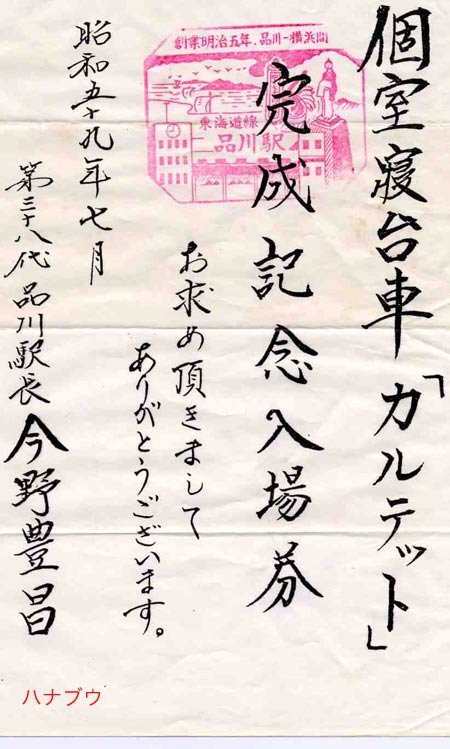 個室寝台車「カルテット」
完成記念入場券
お求め頂きまして
ありがとうございます。
昭和五十九年七月
第三十八代品川駅長今野豊昌
創業明治五年.品川-横浜間
東海道線
品川駅
ハナブウ